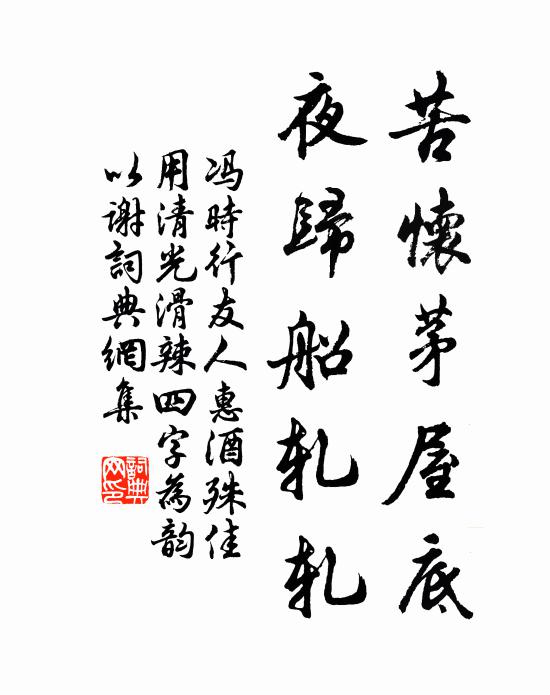 苦懷茅屋底
夜歸船軋軋
冯時行友人惠酒殊佳
用清光滑辣四字為韵
以谢詞典網集
詞典
网印